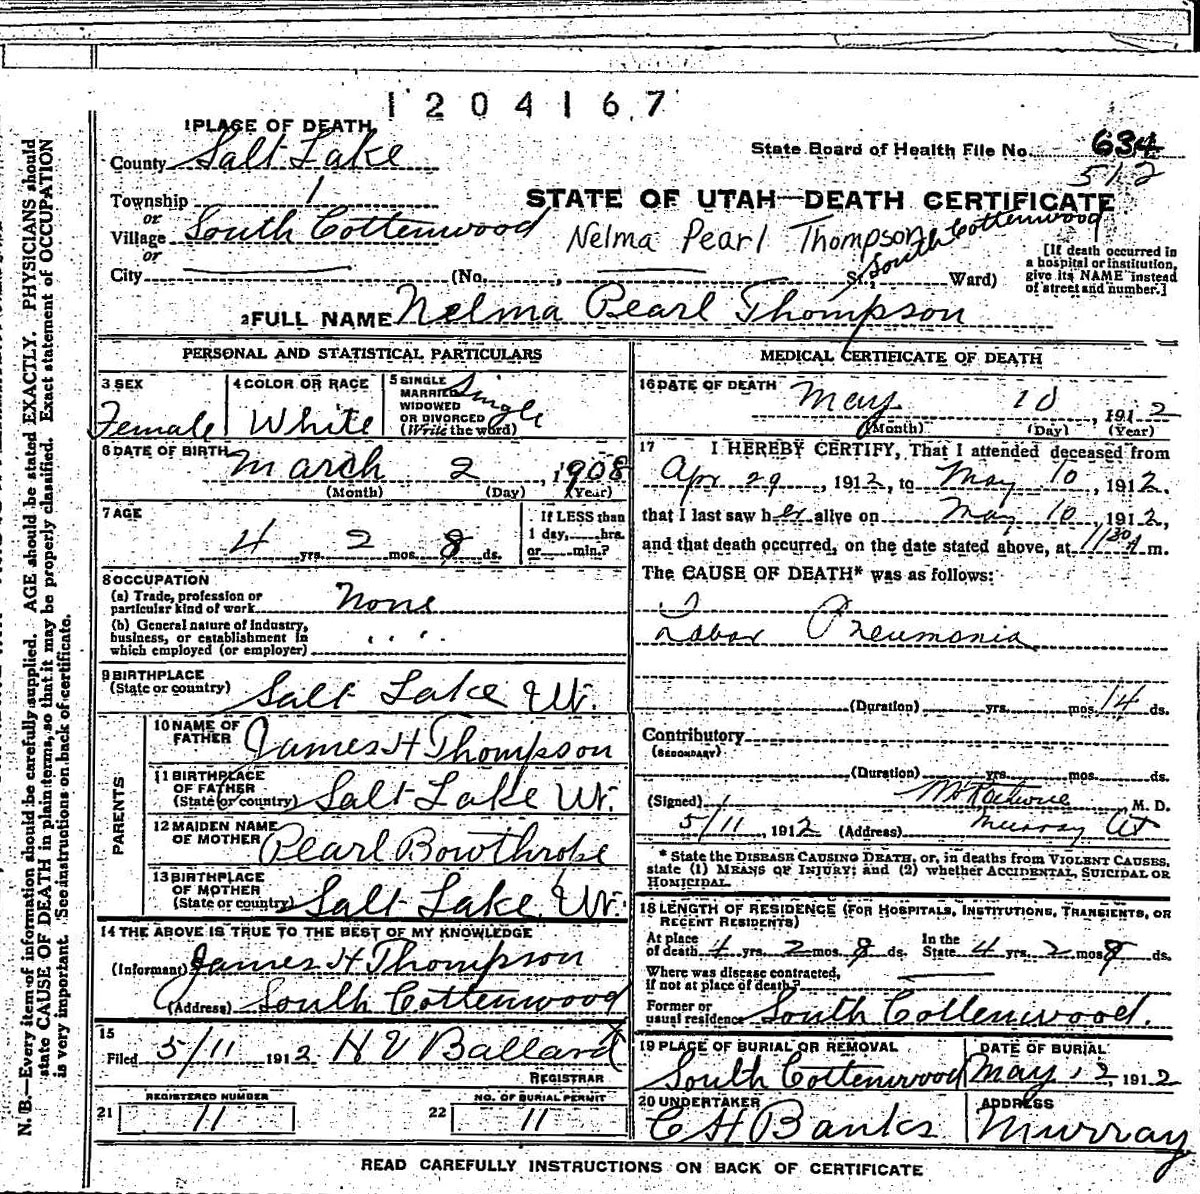 1204167
1 PLACE OF DEATH
County Salt Lake
State Board of Health File No. 634
512
Township 1
or
Village South Cottenwood
or
STATE OF UTAH—DEATH CERTIFICATE
Nelma Pearl Thompson South Cottenwood
City (No. , St. South Ward)
[If death occurred in
a hospital or institution,
give its NAME instead
of street and number.]
2 FULL NAME Nelma Pearl Thompson
PERSONAL AND STATISTICAL PARTICULARS
3 SEX
Female
4 COLOR OR RACE
White
5 SINGLE
MARRIED
WIDOWED
OR DIVORCED
(Write the word)
Single
6 DATE OF BIRTH March 2, 1908
(Month) (Day) (Year)
7 AGE
4 yrs. 2 mos. 8 ds.
If LESS than
1 day, hrs.
or min.?
8 OCCUPATION
(a) Trade, profession or
particular kind of work None
(b) General nature of industry,
business, or establishment in
which employed (or employer)
9 BIRTHPLACE
(State or country) Salt Lake Ut.
PARENTS
10 NAME OF
FATHER James H Thompson
11 BIRTHPLACE
OF FATHER
(State or country) Salt Lake Ut.
12 MAIDEN NAME
OF MOTHER Pearl Bowthrope
13 BIRTHPLACE
OF MOTHER
(State or country) Salt Lake Ut.
14 THE ABOVE IS TRUE TO THE BEST OF MY KNOWLEDGE
(Informant) James H Thompson
(Address) South Cottenwood
15
Filed 5/11 1912 H V Ballard
REGISTRAR
REGISTERED NUMBER
21 11
NO. OF BURIAL PERMIT
22 11
MEDICAL CERTIFICATE OF DEATH
16 DATE OF DEATH May 10, 1912
(Month) (Day) (Year)
17 I HEREBY CERTIFY, That I attended deceased from
Apr 29, 1912, to May 10, 1912,
that I last saw her alive on May 10, 1912,
and that death occurred, on the date stated above, at 11 30 A m.
The CAUSE OF DEATH* was as follows:
Lobar Pneumonia
(Duration) yrs. mos. 14 ds.
Contributory
(SECONDARY)
(Duration) yrs. mos. ds.
(Signed) M. D.
5/11, 1912 (Address) Murray Ut
* State the DISEASE CAUSING DEATH, or, in deaths from VIOLENT CAUSES,
state (1) MEANS OF INJURY; and (2) whether ACCIDENTAL, SUICIDAL OR
HOMICIDAL.
18 LENGTH OF RESIDENCE (FOR HOSPITALS, INSTITUTIONS, TRANSIENTS, OR
RECENT RESIDENTS)
At place
of death 4 yrs. 2 mos. 8 ds. In the
State 4 yrs. 2 mos. 8 ds.
Where was disease contracted,
if not at place of death?
Former or
usual residence South Cottenwood.
19 PLACE OF BURIAL OR REMOVAL
South Cottenwood
DATE OF BURIAL
May 12, 1912
20 UNDERTAKER
C H Banks
ADDRESS
Murray
READ CAREFULLY INSTRUCTIONS ON BACK OF CERTIFICATE
N. B.—Every item of information should be carefully supplied. AGE should be stated EXACTLY. PHYSICIANS should
state CAUSE OF DEATH in plain terms, so that it may be properly classified. Exact statement of OCCUPATION
is very important. See instructions on back of certificate.